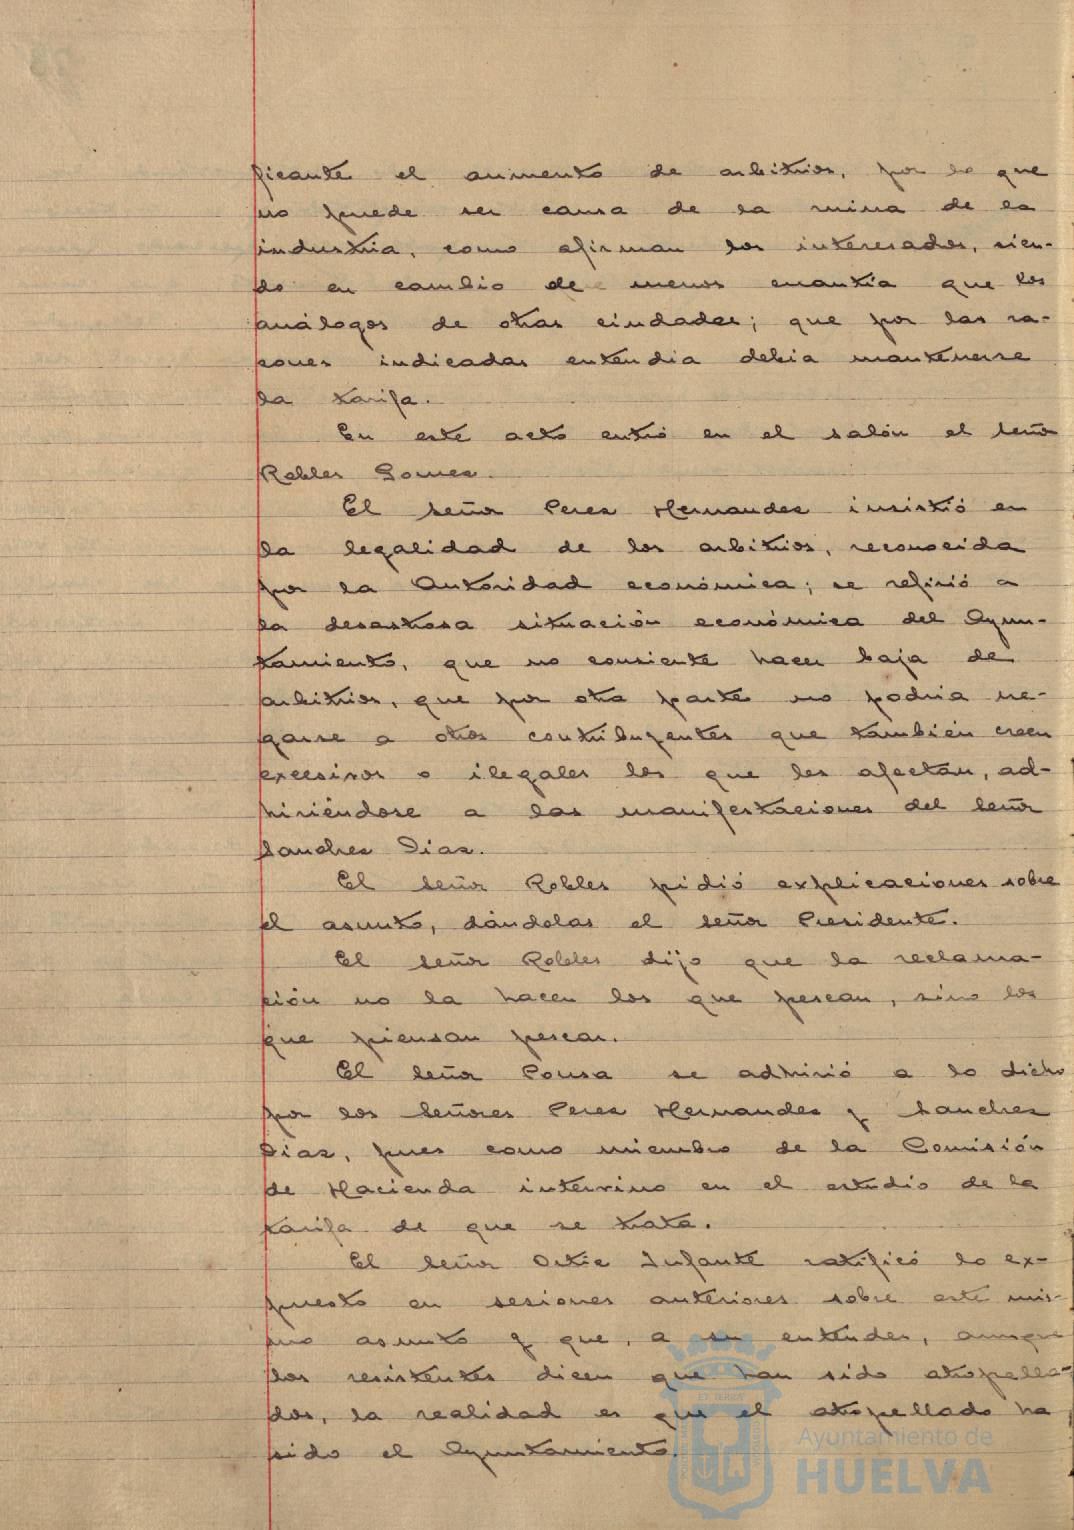 ficante el aumento de arbitrios, por lo que
no puede ser causa de la ruina de la
industria, como afirman los interesados, sien-
do en cambio de menos cuantia que los
análogos de otras ciudades; que por las ra-
zones indicadas entendia debia mantenerse
la tarifa.
En este acto entró en el salón el señor
Robles Gomez.
El señor Perez Hernandez insistió en
la legalidad de los arbitrios, reconocida
por la Autoridad económica; se refirió a
la desastrosa situación económica del Ayun-
tamiento, que no consiente hacer baja de
arbitrios, que por otra parte no podria ne-
garse a otros contribuyentes que también creen
excesivos o ilegales los que les afectan, ad-
hiriéndose a las manifestaciones del señor
Sanchez Diaz.
El señor Robles pidió explicaciones sobre
el asunto, dándolas el señor Presidente.
El señor Robles dijo que la reclama-
ción no la hacen los que pescan, sino los
que piensan pescar.
El señor Pousa se adhirió a lo dicho
por los señores Perez Hernandez y Sanchez
Diaz, pues como miembro de la Comisión
de Hacienda intervino en el estudio de la
tarifa de que se trata.
El señor Ortiz Infante ratificó lo ex-
puesto en sesiones anteriores sobre este mis-
mo asunto y que, a su entender, aunque
los resistentes dicen que han sido atropella-
dos, la realidad es que el atropellado ha
sido el Ayuntamiento.
Ayuntamiento de
HUELVA